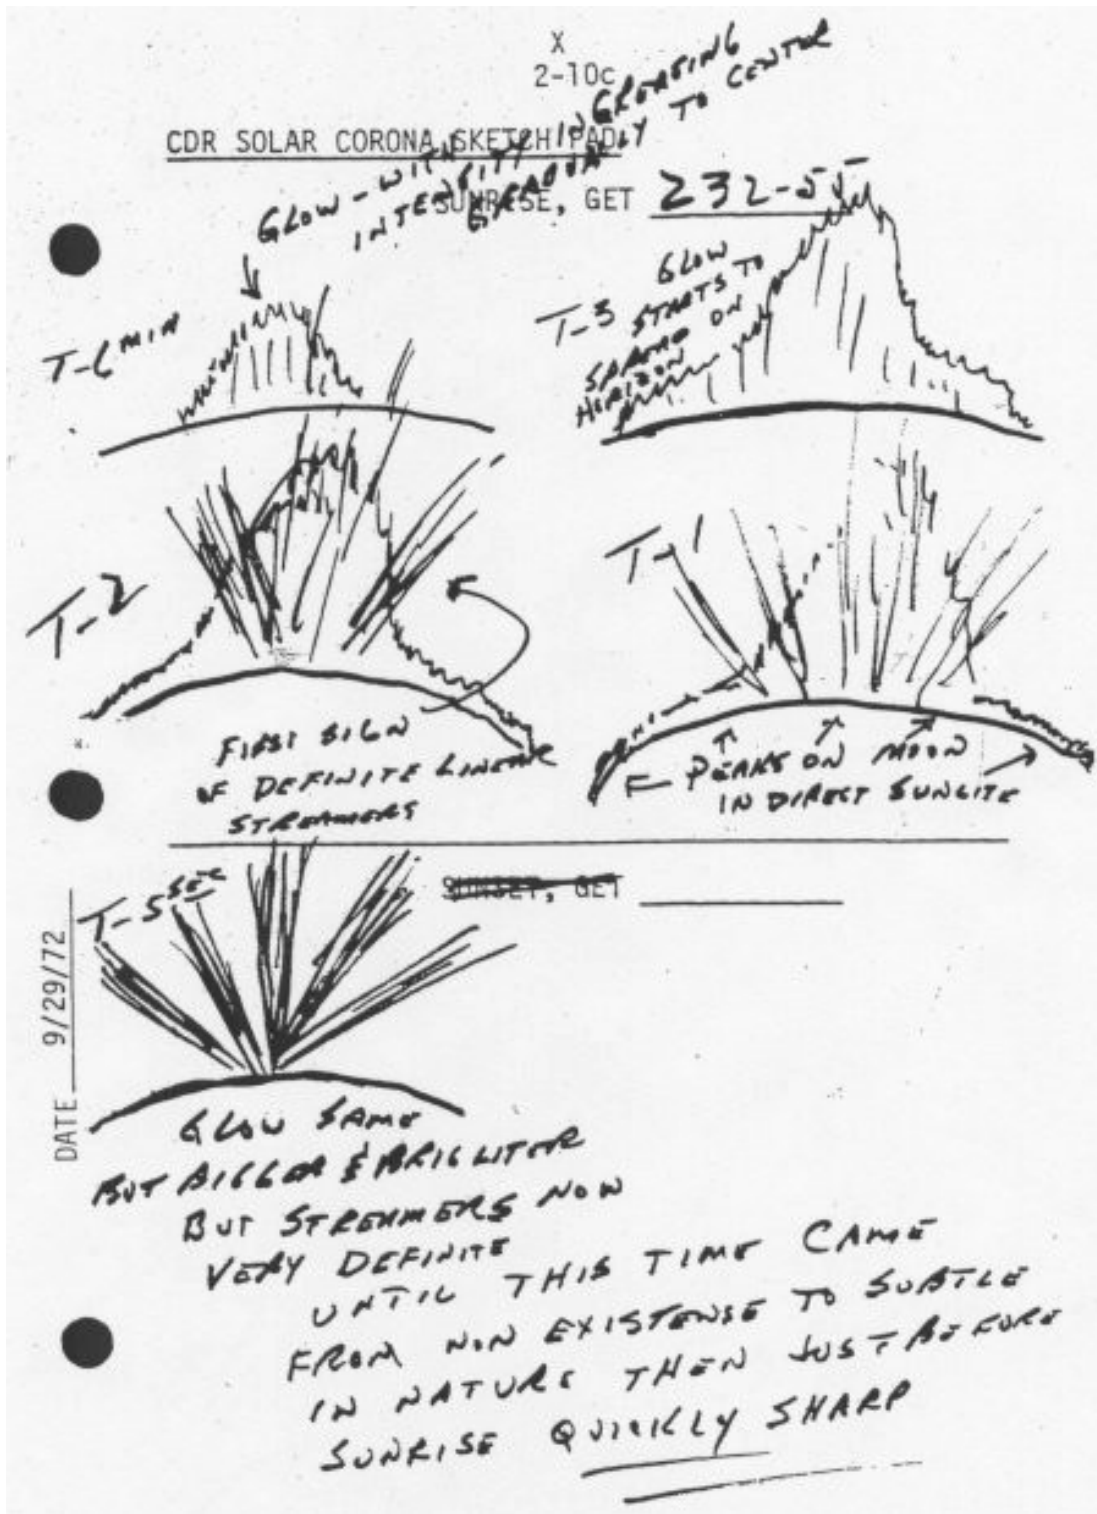 X
2-10c
CDR SOLAR CORONA SKETCH PAD
SUNRISE, GET 232-55
GLOW - WITH
INTENSITY INCREASING
GRADUALLY TO CENTER
T-6 MIN
T-3
GLOW
STARTS TO
SPREAD ON
HORIZON
T-2
FIRST SIGN
OF DEFINITE LINEAR
STREAMERS
T-1
PEAKS ON MOON
IN DIRECT SUNLITE
SUNSET, GET
T-5 SEC
DATE 9/29/72
GLOW SAME
BUT BIGGER & BRIGHTER
BUT STREAMERS NOW
VERY DEFINITE
UNTIL THIS TIME CAME
FROM NON EXISTENSE TO SUBTLE
IN NATURE THEN JUST BEFORE
SUNRISE QUICKLY SHARP